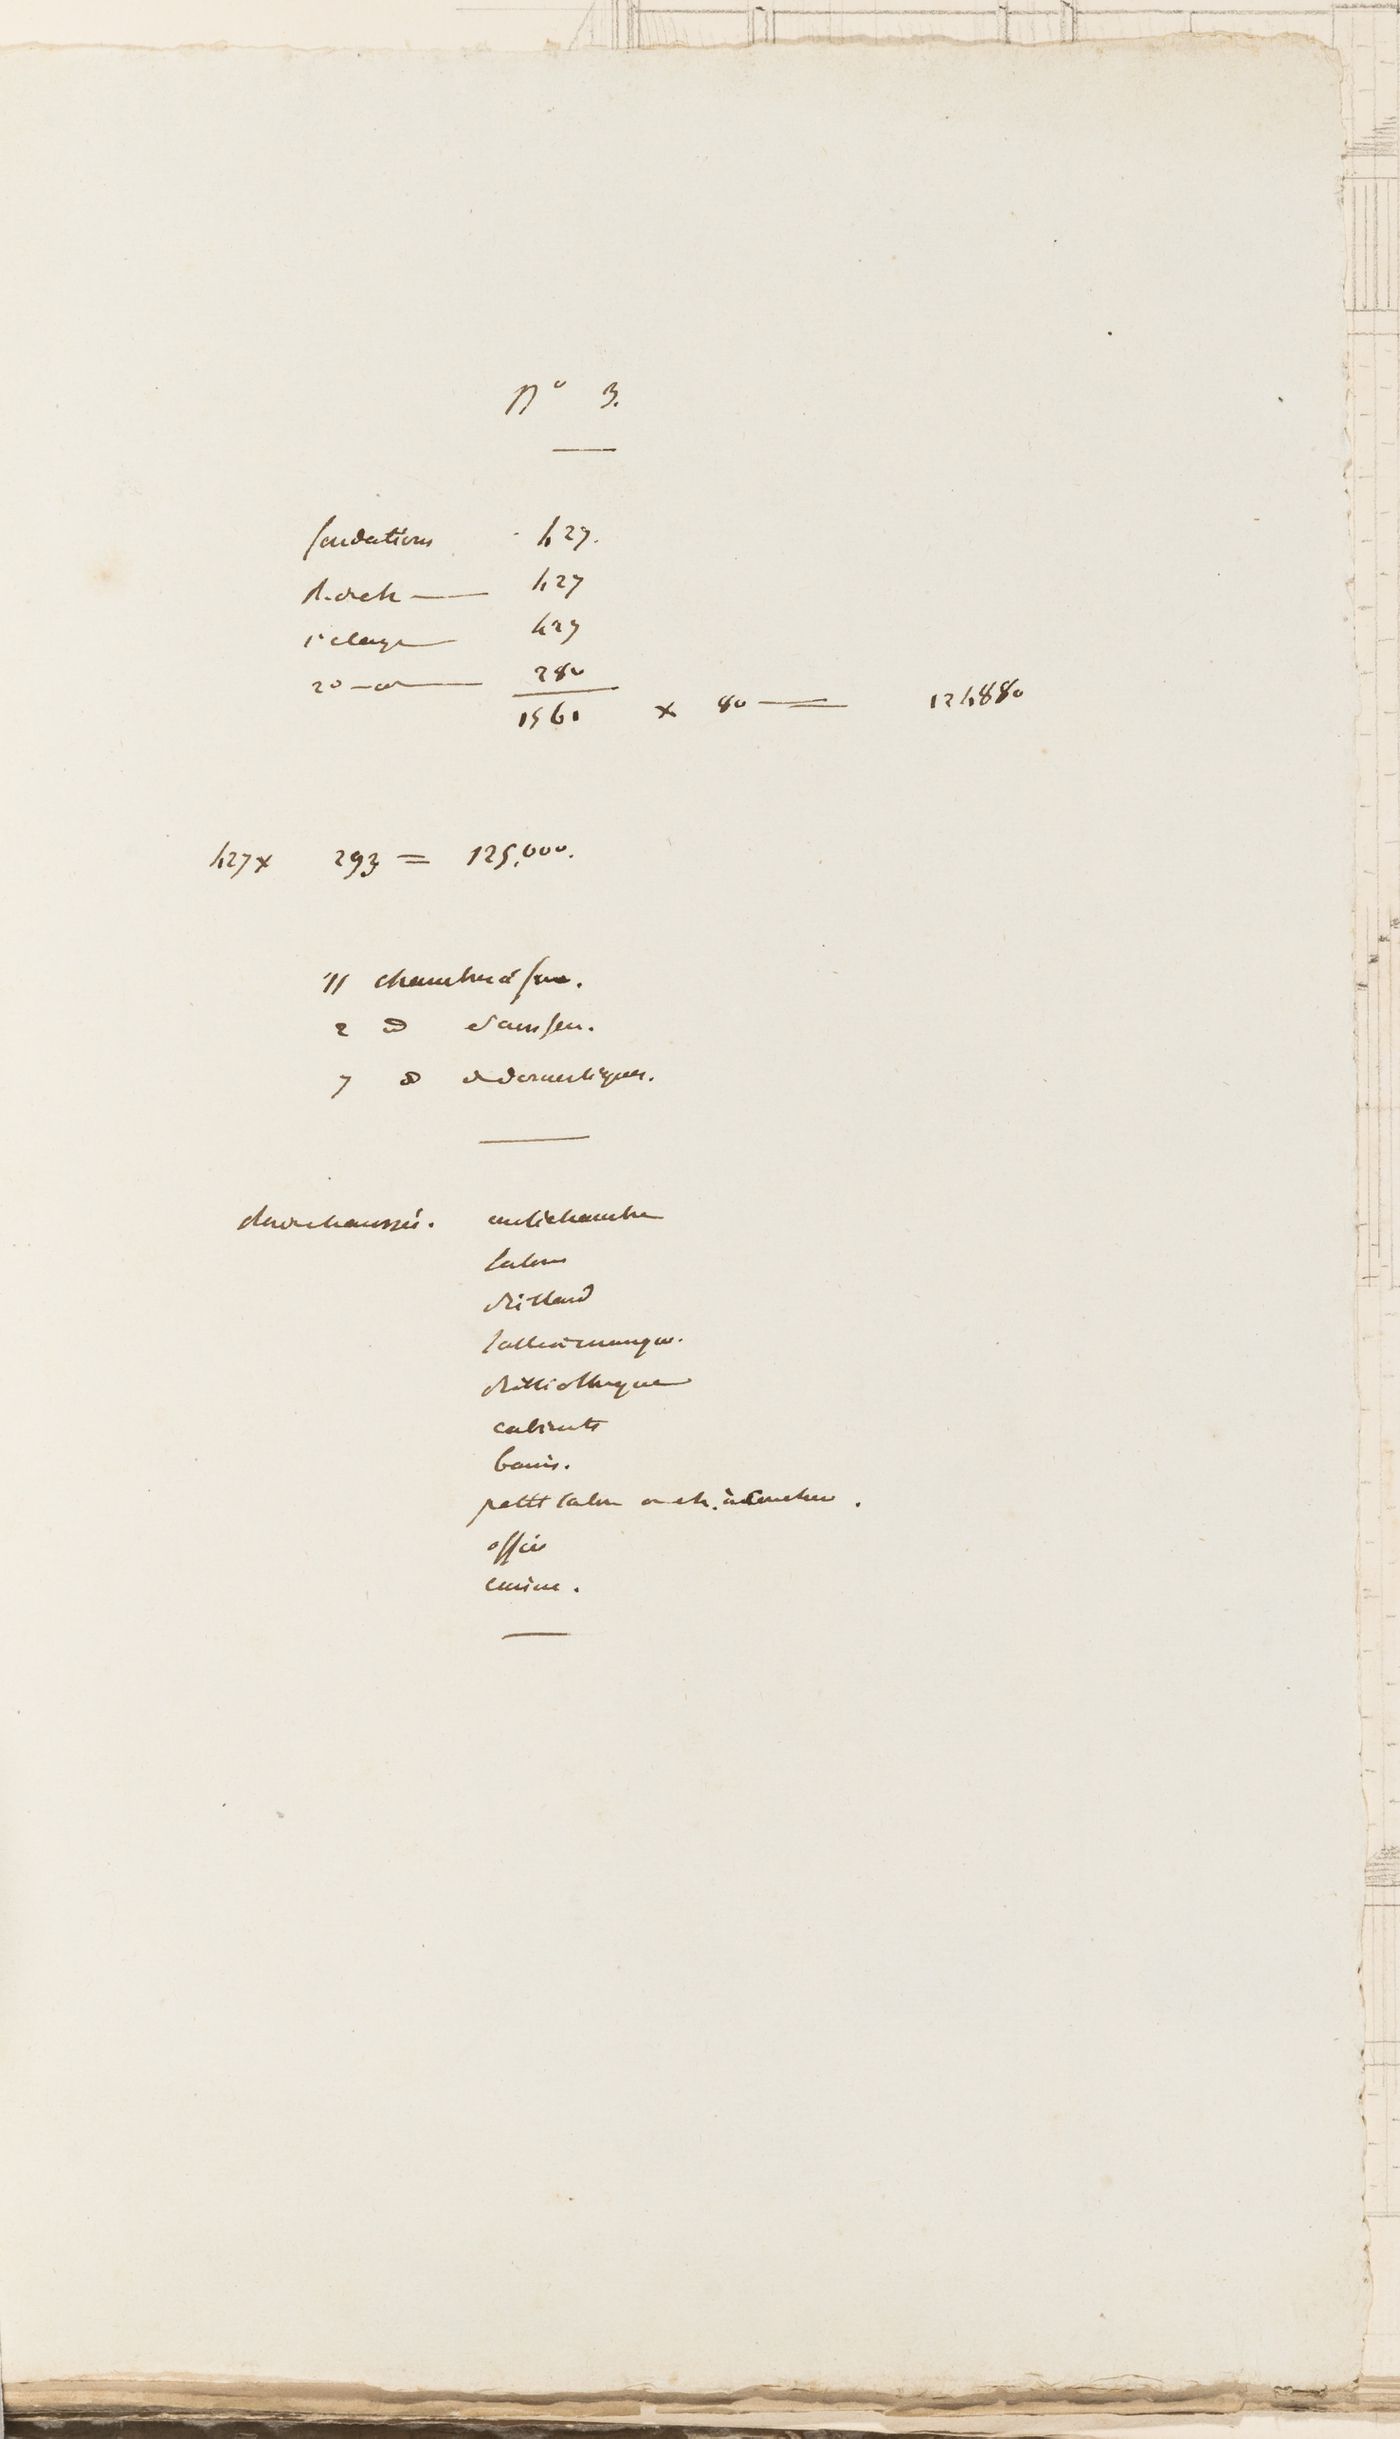 No 3.
fondations 427.
R. de ch 427
1er étage 427
2o do 280
1561 x 80 = 124880
427 x 293 = 125,000.
11 chambres à feu.
2 do sans feu.
7 do de domestiques.
rez de chaussée. antichambre
salon
billard
salle à manger.
bibliothèque
cabinets
bains.
petit salon ou ch. à coucher.
office
cuisine.